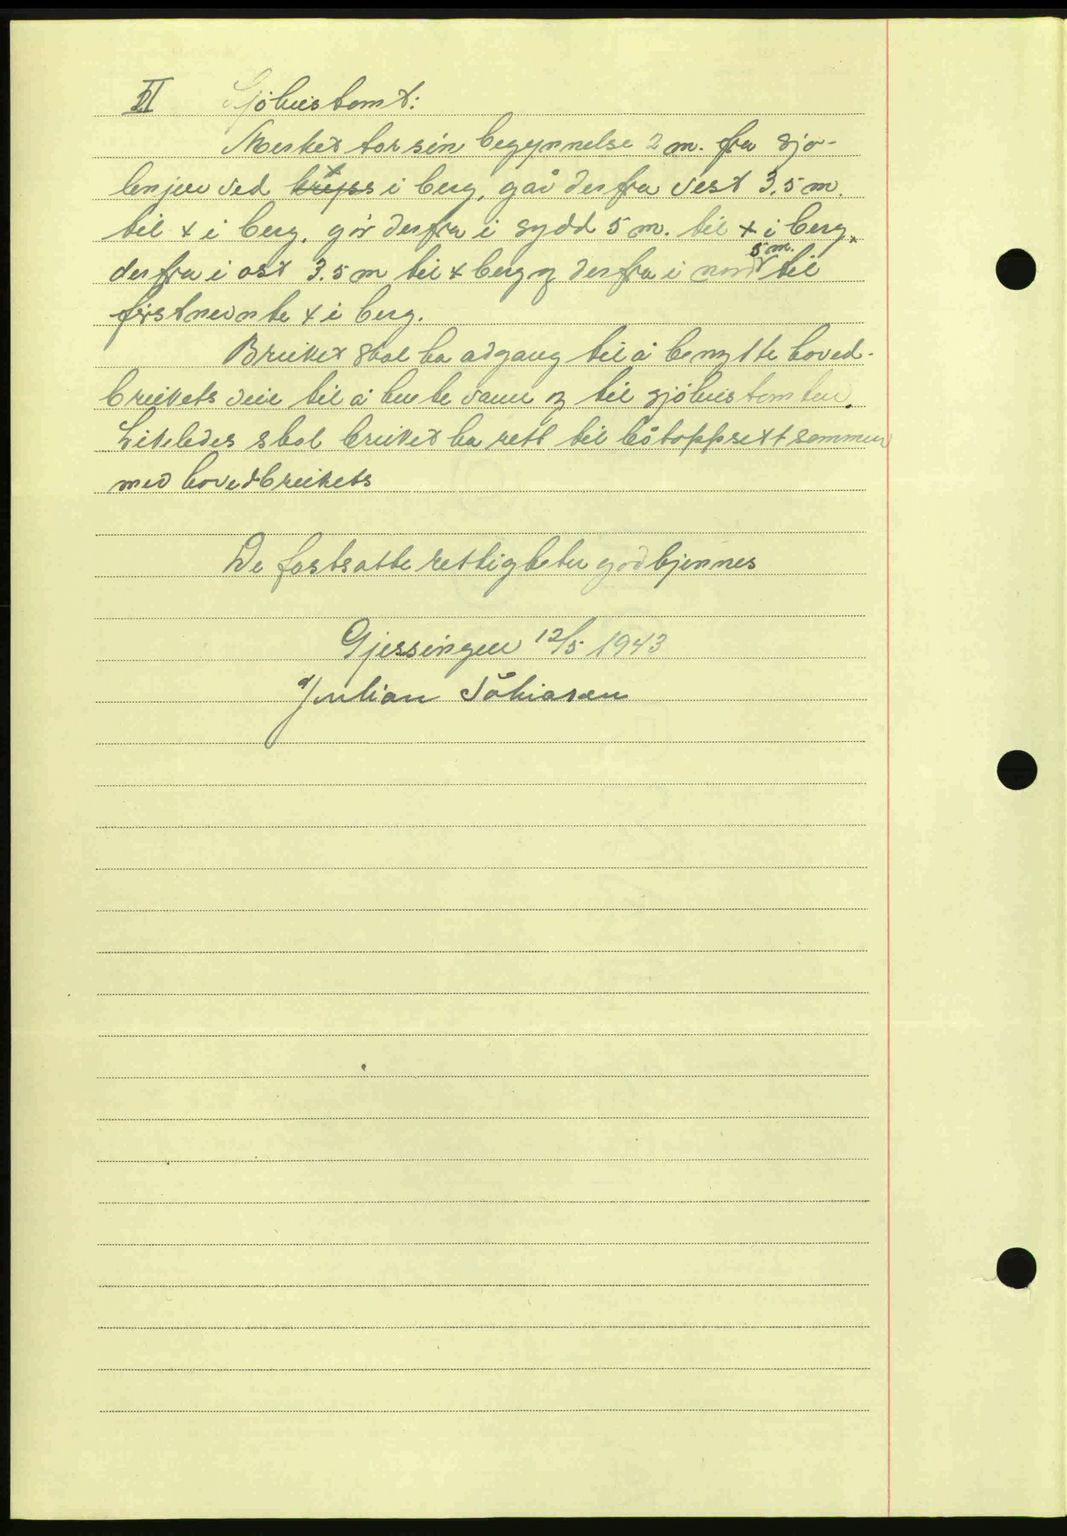 II Sjöhustomt:
Merket tar sin begynnelse 2 m. fra sjø-
lenjen ved x i berg, går derfra vest 3,5 m.
til x i berg, går derfra i sydd 5 m. til x i berg,
derfra i ost 3.5 m til x berg og derfra i nord 5 m. til
førstnevnte x i berg.
Bruket skal ha adgang til å benytte hoved-
brukets veie til å hente vann og til sjöhustomten.
Likeledes skal bruket ha rett til båtoppsett sammen
med hovedbrukets
De fastsatte rettigheter godkjennes
Gjessingen 12/5 1943
Julian Tobiasen